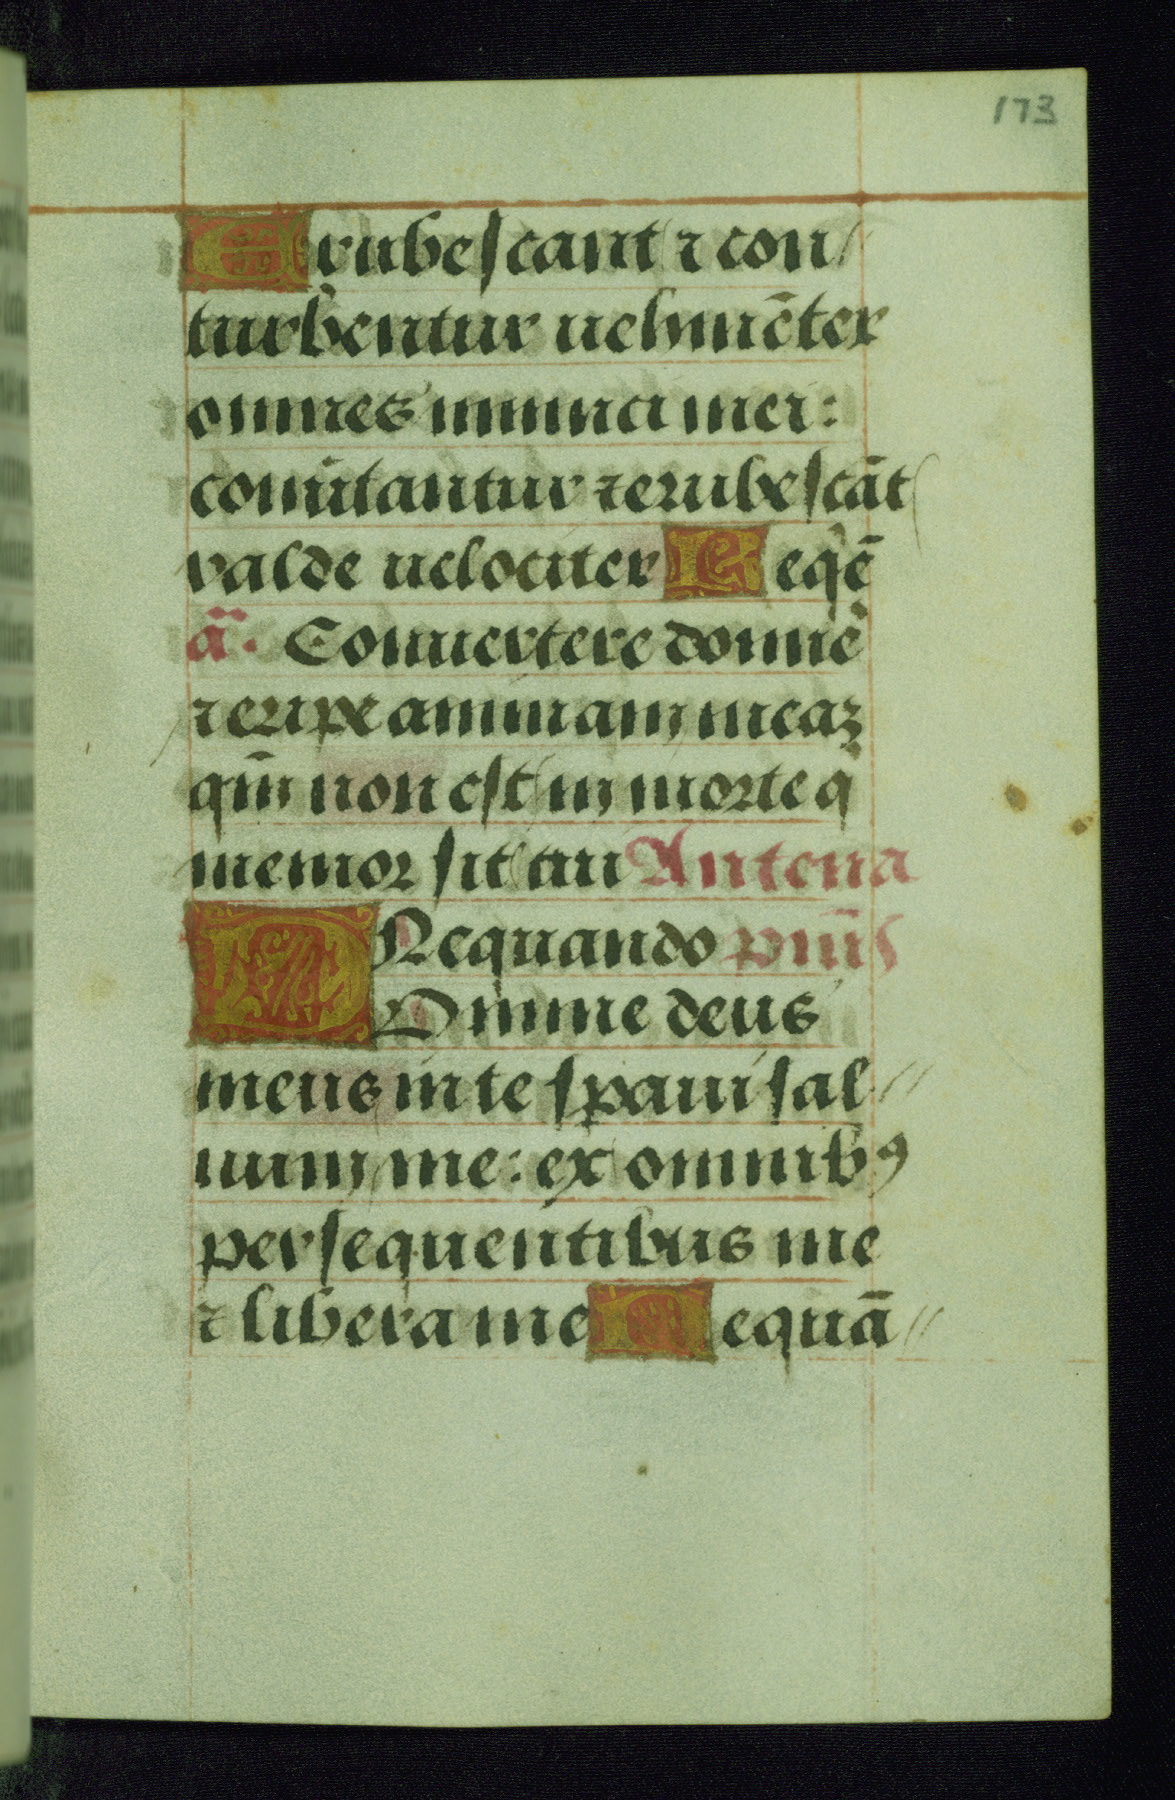 173
Erubescant ⁊ con/
turbentur uehmēter
omnes inimici mei:
conūtantur ⁊ erubescāt
valde uelociter Reqē
ā. Conuertere domīe
⁊ eripe animam meaꝫ
qm̄ non est in morte q̇
memor sit tui Antena
Nequando pm̄s
Domine deus
meus in te sꝑaui sal//
uum me: ex omnibꝰ
persequentibus me
⁊ libera me Nequā//